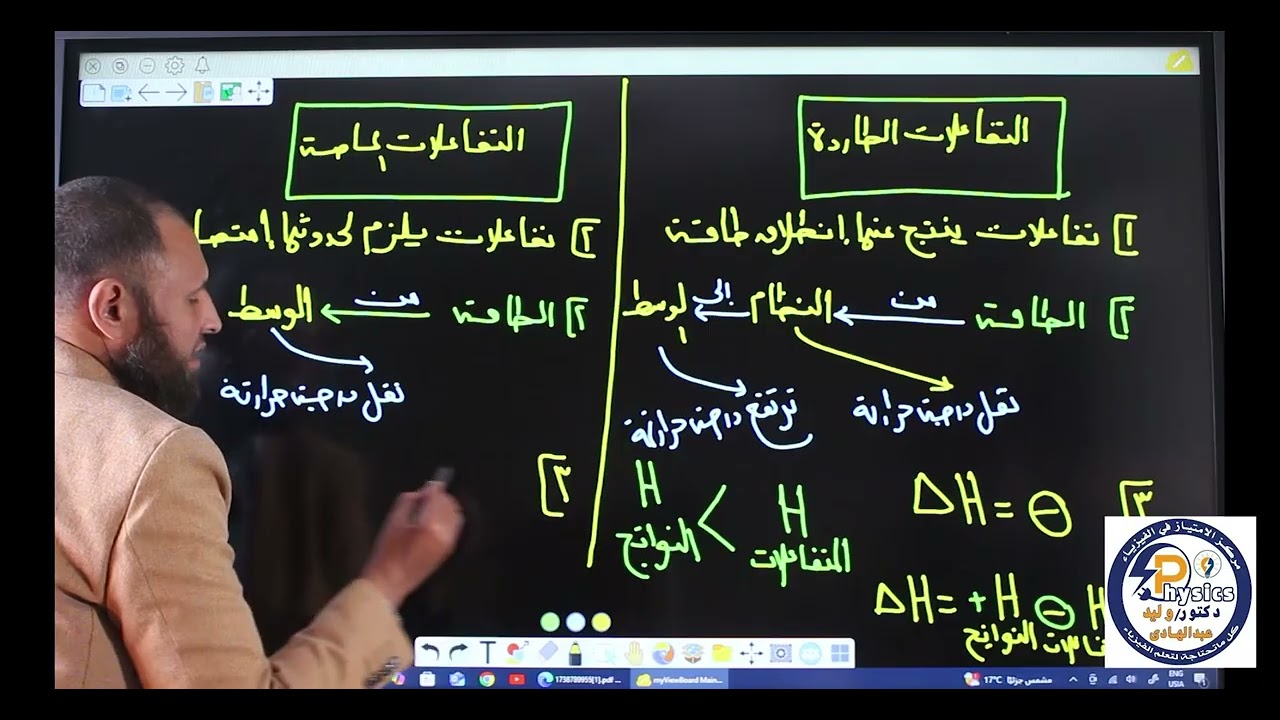 التفاعلات الطاردة
١] تفاعلات ينتج عنها إنطلاق طاقة
٢] الطاقة من النظام إلى الوسط
تقل درجة حرارته
ترتفع درجة حرارته
٣] ΔH = ⊖
H النواتج < H المتفاعلات
ΔH = + H النواتج ⊖ H
التفاعلات الماصة
١] تفاعلات يلزم لحدوثها إمتصا
٢] الطاقة من الوسط
تقل درجة حرارته
٣]
مركز الامتياز في الفيزياء
Physics
دكتور/وليد
عبدالهادى
كل ماتحتاجة لتعلم الفيزياء
1738789955[1].pdf ...
myViewBoard Main...
17°C مشمس جزئيًا
ENG
USA